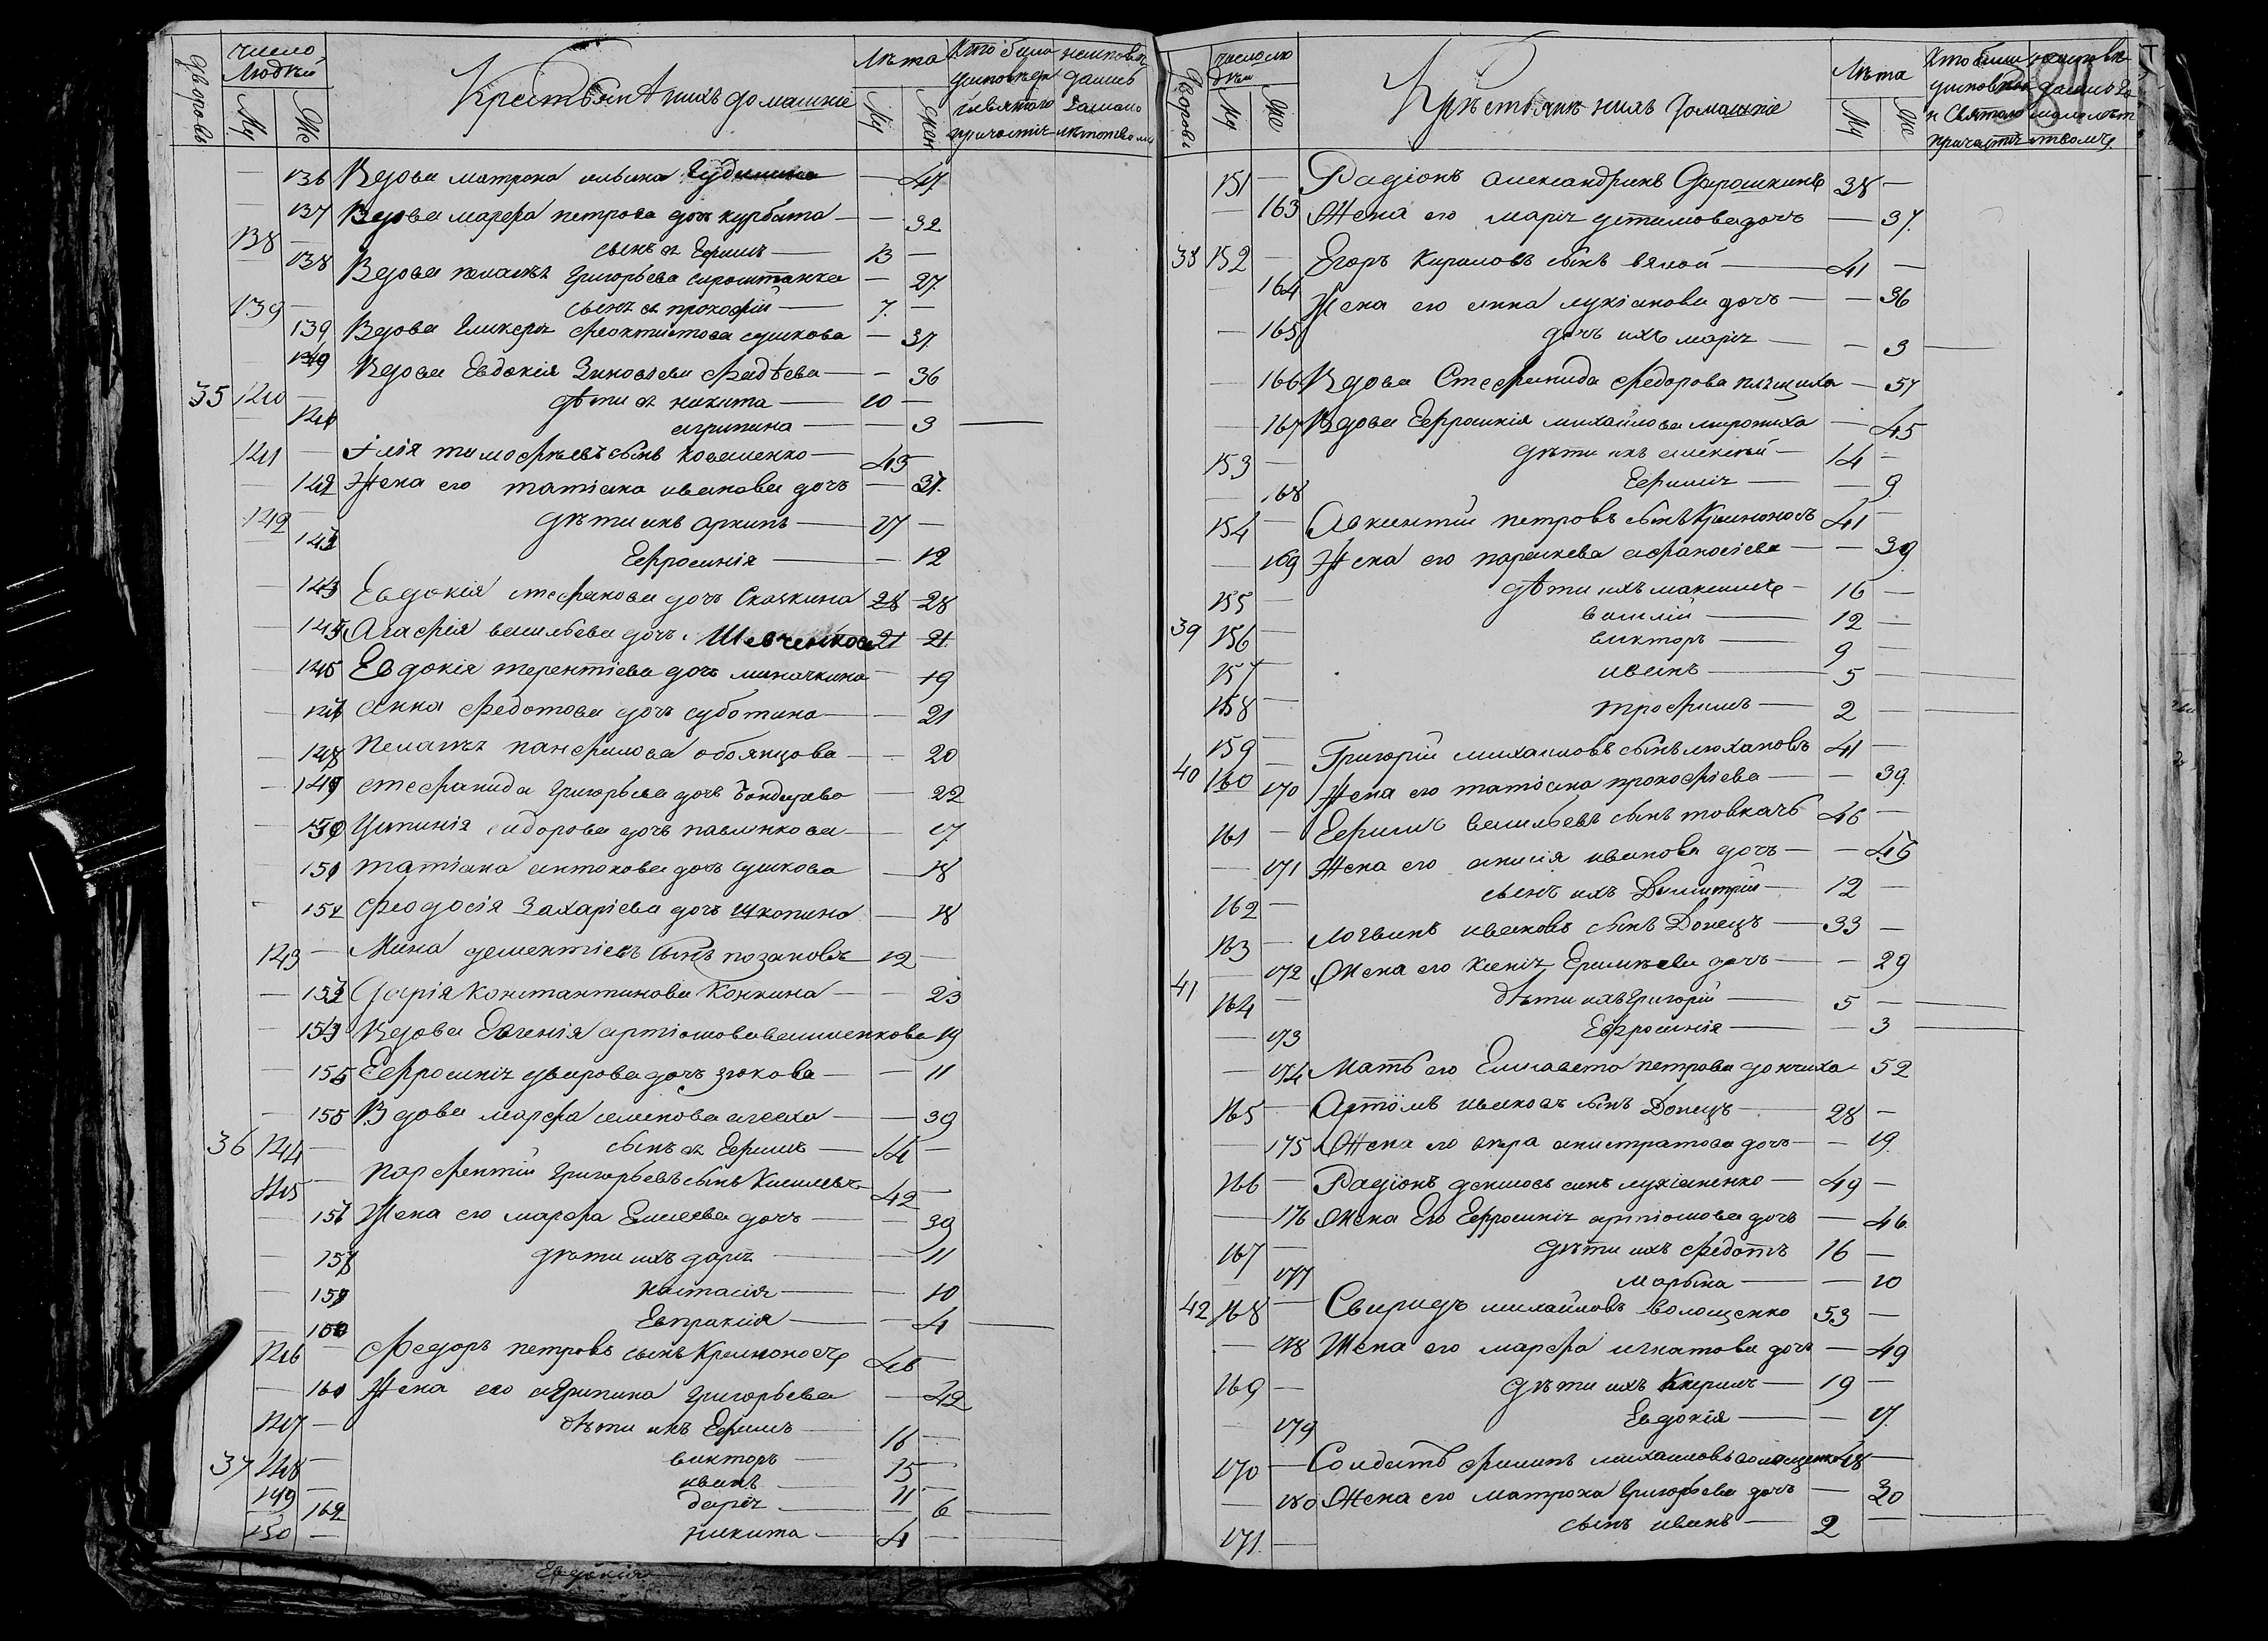 Дворовъ
число людѣй
Му
Же
Крестьянѣ и ихъ домашніе
Лѣта
Му
Жен
136 Вдова матрона ильина — 47
137 Вдова марѳа петрова доч курбата — 32
138 сынъ ея Ефимъ — 13
138 Вдова пелагѣя Григорьева — 27
139 сынъ ея прокофій — 7
139 Вдова Гликерія Феоктистова сушкова — 37
Вдова Евдокія Зиновьева Фадѣева — 36
35 140 дѣти ея никита — 10
агрипина — 3
141 Ілія тимофѣевъ сынъ коваленко — 45
Жена его татіана иванова дочъ — 37
142 дѣти ихъ архипъ — 17
Ефросинія — 12
Евдокія стефанова дочъ Скачкина 28 28
Агафія васильева дочъ Шевченкова 21 21
Евдокія терентіева дочъ миначкина — 19
Анна Федотова дочъ суботина — 21
148 Пелагѣя панфилова обоянцова — 20
149 стефанида Григорьева дочъ бондарева — 22
150 Устинія сидорова дочъ павленкова — 17
151 татіана антонова дочъ сушкова — 18
152 Феодосія Захаріева дочъ щкопина — 18
143 Мина дементіевъ сынъ позановъ 12 —
Дарія Константинова Конкина — 23
Вдова Евгенія артіомова 19
155 Ефросинія уварова дочъ зюкова — 11
Вдова марфа семенова — 39
36 144 сынъ ея Ефимъ — 14
145 парфентій Григорьевъ сынъ Киселевъ 42 —
Жена его марфа Елисеева дочъ — 39
дѣти ихъ дарія — 11
настасія — 10
Евпраксія — 4
146 Федоръ петровъ сынъ Кривоносъ 46
Жена его агрипина Григорьева — 42
147 дѣти ихъ Ефимъ — 16
37 148 викторъ — 15
149 иванъ — 11
162 дарія — 6
150 никита — 4
Евдокія
Дворовъ
число людѣй
Му
Же
Крѣстьянѣ и ихъ домашніе
Лѣта
Му
Же
381
151 Радіонъ александринъ Дорошкинъ 38 —
163 Жена его марія устимова дочъ — 37
38 152 Егоръ Кириловъ сынъ вялой — 41 —
164 Жена его анна лукіанова дочъ — 36
165 дочъ ихъ марія — 3
166 Вдова Стефанида федорова — 57
167 Вдова Ефросинія михайлова мирониха — 45
153 дѣти ихъ алексѣй — 14
168 Ефимія — 9
154 Авксентій петровъ сынъ Кривоносъ 41 —
169 Жена его параскева афанасіева — 39
155 дѣти ихъ максимъ — 16 —
39 156 василій — 12 —
157 викторъ — 9 —
иванъ — 5 —
158 трофимъ — 2 —
159 Григорій михаиловъ сынъ 41 —
40 160 170 Жена его татіана прокофіева — 39
161 Ефимъ васильевъ сынъ товкачъ 46 —
171 Жена его анисія иванова дочъ — 45
162 сынъ ихъ Димитрій — 12 —
163 логвинъ ивановъ сынъ Донецъ — 33 —
172 Жена его ксенія дочъ — 29
41 164 дѣти ихъ Григорій — 5 —
173 Ефросинія — 3
174 Мать его Елисавета петрова дончиха — 52
165 Артіомъ ивановъ сынъ Донецъ — 28 —
175 Жена его вѣра анистратова дочъ — 19
166 Радіонъ денисовъ сынъ лукіаненко — 49 —
176 Жена Его Ефросинія артіомова дочъ — 46
167 дѣти ихъ федотъ 16 —
177 марьна — 10
42 168 Свиридъ михайловъ волощенко 53 —
178 Жена его марфа игнатова дочъ — 49
169 дѣти ихъ — 19 —
179 Евдокія — 17
170 Солдатъ филипъ михаиловъ волощенко 48 —
180 Жена его матрона Григорьева дочъ — 30
171 сынъ иванъ — 2 —